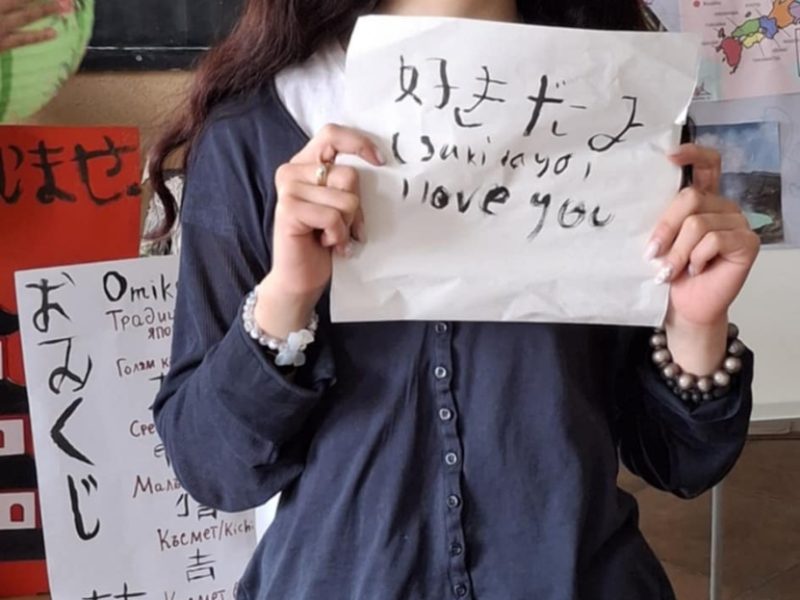 好きだよ
(sukidayo)
I love you
じませ
おみくじ
Omik
Тради
япо
Голям к
Сре
Малъ
Късмет/Kichi
吉